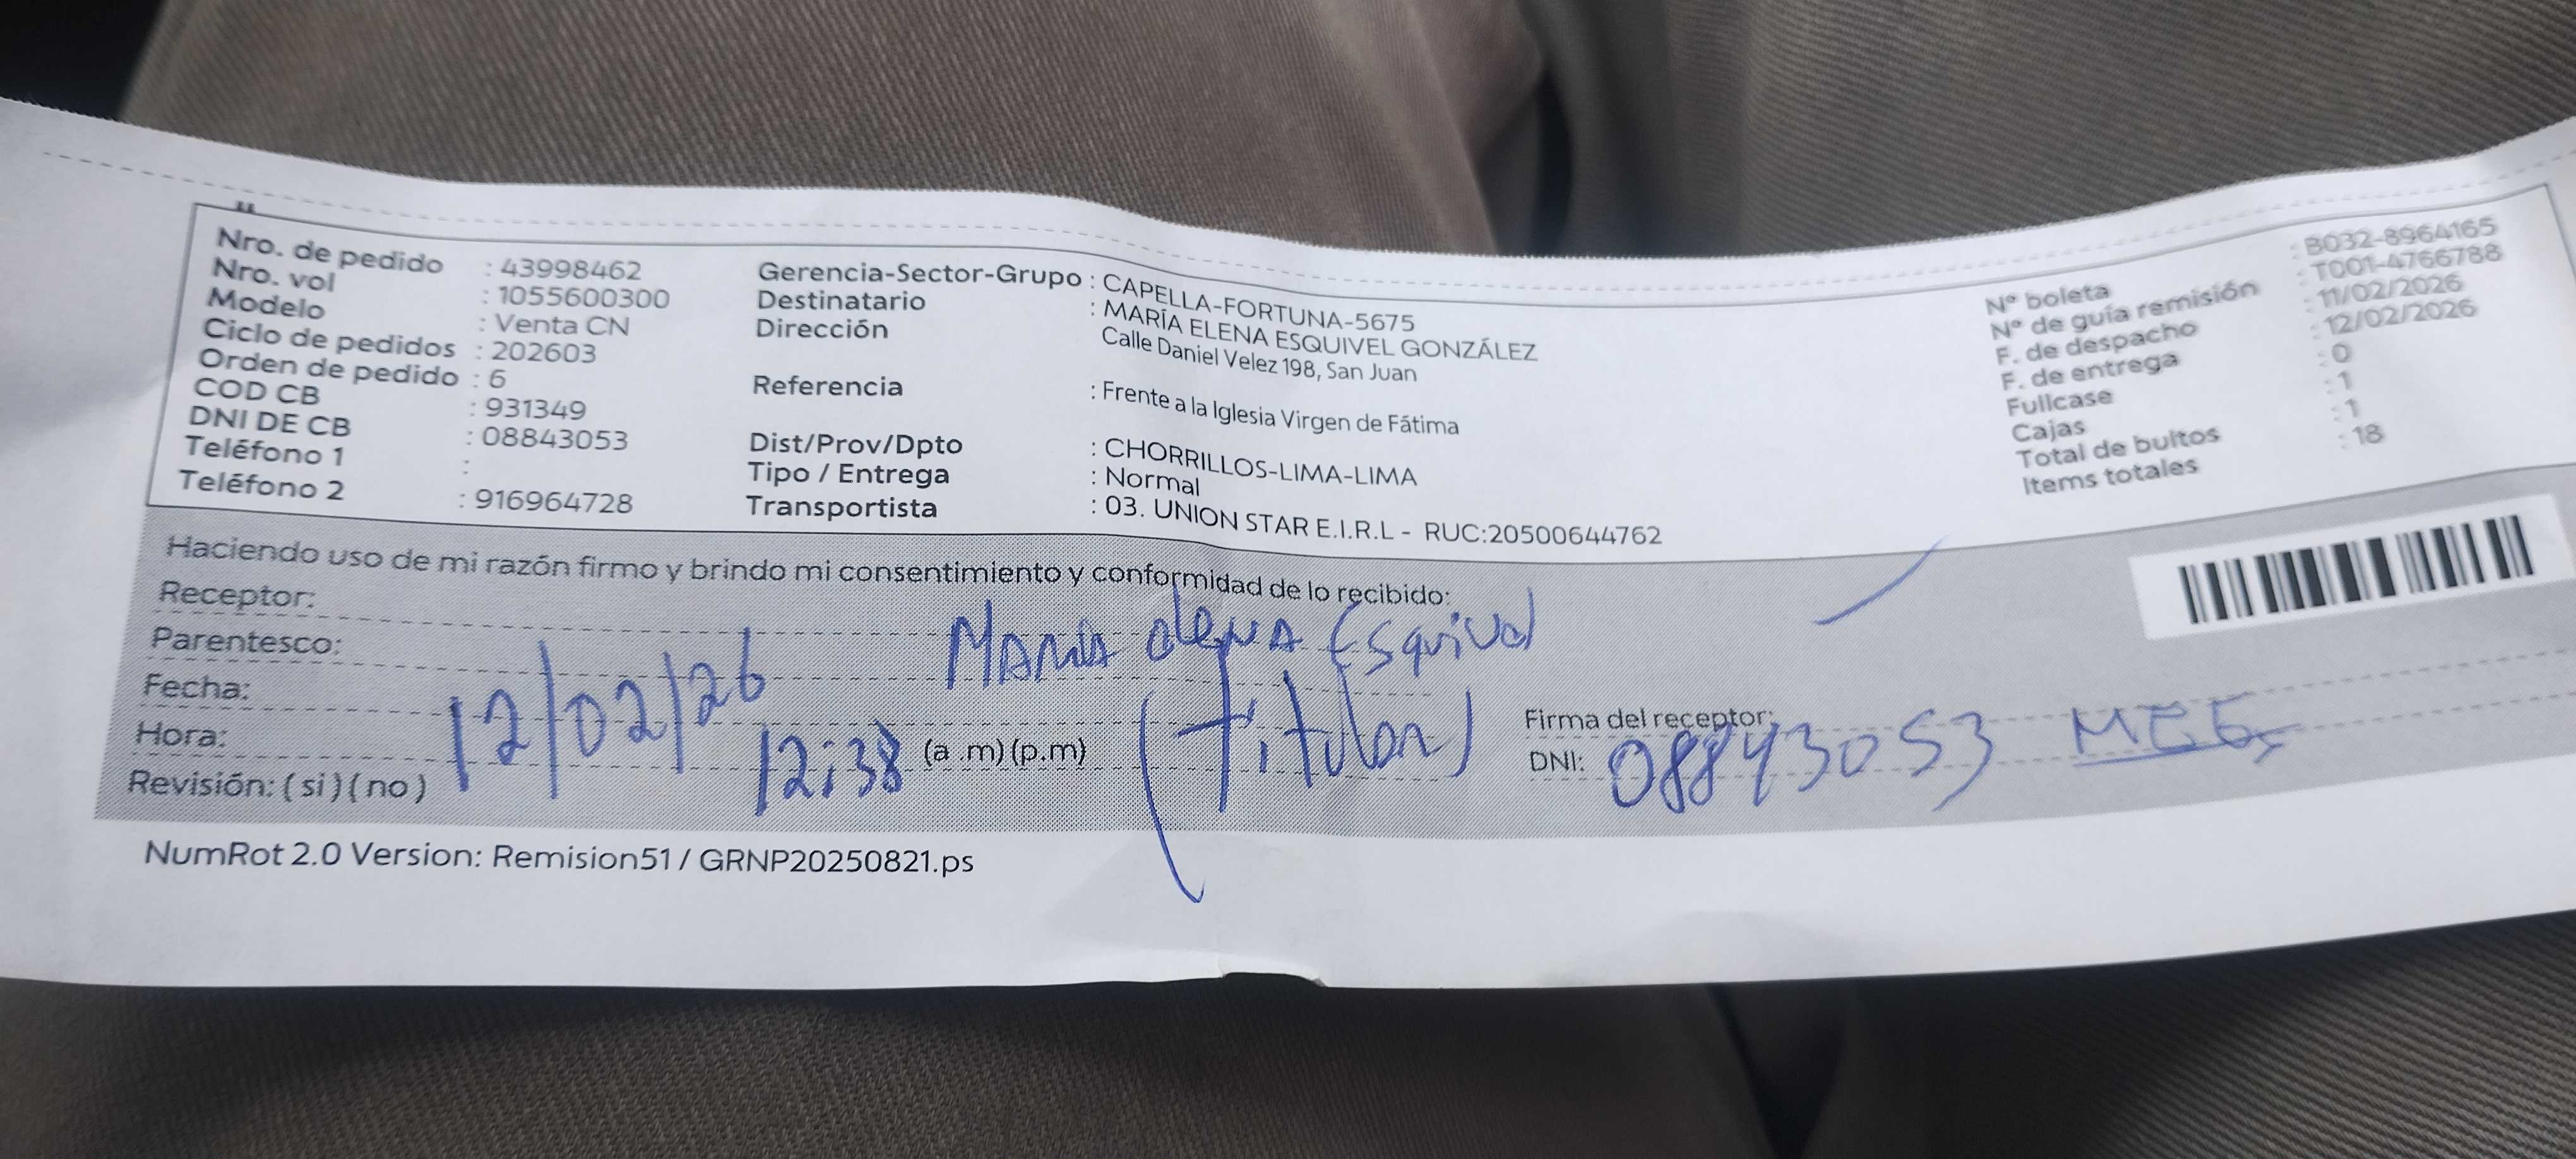 Nro. de pedido : 43998462
Nro. vol : 1055600300
Modelo : Venta CN
Ciclo de pedidos : 202603
Orden de pedido : 6
COD CB : 931349
DNI DE CB : 08843053
Teléfono 1 :
Teléfono 2 : 916964728
Gerencia-Sector-Grupo : CAPELLA-FORTUNA-5675
Destinatario : MARÍA ELENA ESQUIVEL GONZÁLEZ
Dirección Calle Daniel Velez 198, San Juan
Referencia : Frente a la Iglesia Virgen de Fátima
Dist/Prov/Dpto : CHORRILLOS-LIMA-LIMA
Tipo / Entrega : Normal
Transportista : 03. UNION STAR E.I.R.L - RUC:20500644762
N° boleta : B032-8964165
N° de guía remisión : T001-4766788
F. de despacho : 11/02/2026
F. de entrega : 12/02/2026
Fullcase : 0
Cajas : 1
Total de bultos : 1
Items totales : 18
Haciendo uso de mi razón firmo y brindo mi consentimiento y conformidad de lo recibido:
Receptor: María elena Esquivel
Parentesco: (Titular)
Fecha: 12/02/26
Hora: 12:38 (a .m) (p.m)
Revisión: ( si ) ( no )
Firma del receptor: MEEG
DNI: 08843053
NumRot 2.0 Version: Remision51 / GRNP20250821.ps